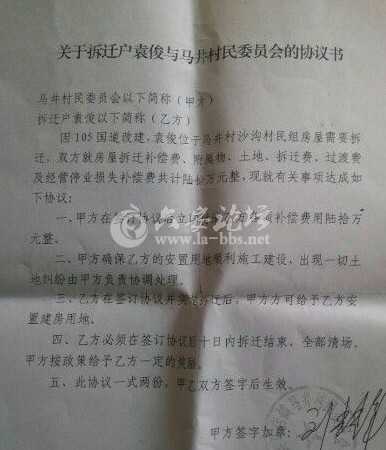 关于拆迁户袁俊与马井村民委员会的协议书
马井村民委员会以下简称（甲方）
拆迁户袁俊以下简称（乙方）
因105国道改建，袁俊位于马井村沙沟村民组房屋需要拆
迁，双方就房屋拆迁补偿费、附属物、土地、拆迁费、过渡费
及经营停业损失补偿费共计陆拾万元整，现就有关事项达成如
下协议：
一、甲方在乙方协议后立即 乙方各项补偿费用陆拾万
元整。
二、甲方确保乙方的安置用地顺利施工建设，出现一切土
地纠纷由甲方负责协调处理。
三、乙方在签订协议并 拆迁后，甲方方可给予乙方安
置建房用地。
四、乙方必须在签订协议后十日内拆迁结束，全部清场，
甲方按政策给予乙方一定的奖励。
五、此协议一式两份，甲乙双方签字后生效。
甲方签字加章：
六安论坛
www.la-bbs.net